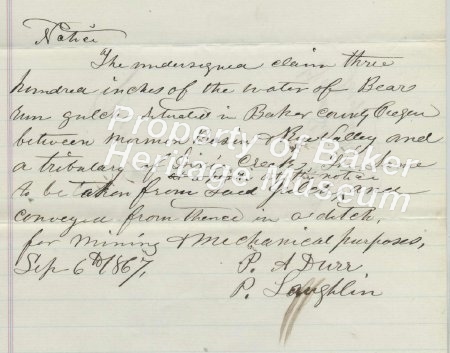 Notice
The undersigned claim three
hundred inches of the water of Bear
run gulch situated in Baker county Oregon
between mormon Basin & Rye Valley and
a tributary of Creek
to be taken from said gulch and
conveyed from thence in a ditch,
for mining & mechanical purposes,
Sep 6th 1867,
P. A Durr
P. Laughlin
Property of Baker
Heritage Museum